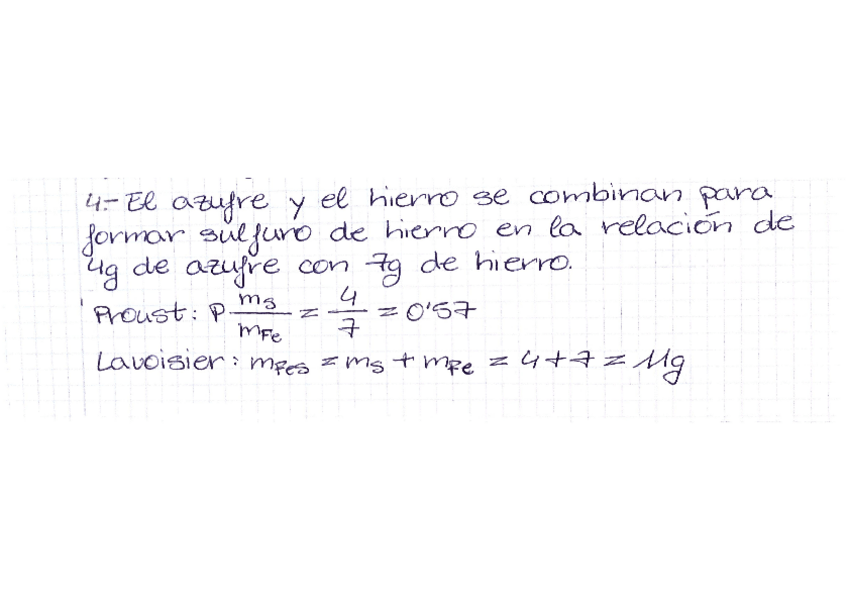 4.- El azufre y el hierro se combinan para
formar sulfuro de hierro en la relación de
4g de azufre con 7g de hierro.
Proust: P mS/mFe = 4/7 = 0'57
Lavoisier: mFeS = mS + mFe = 4+7 = 11g